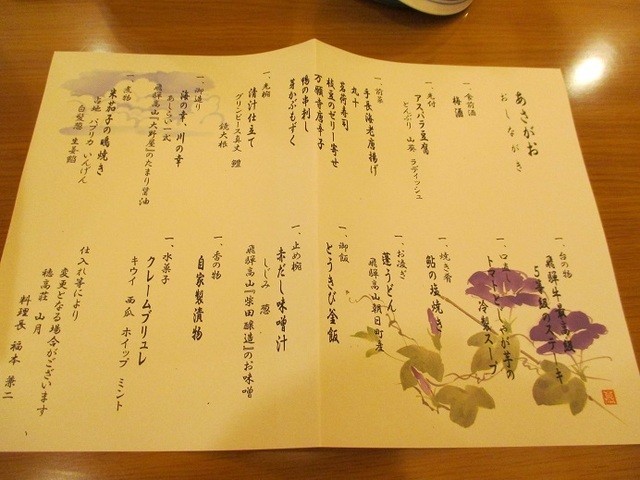 あさがお
おしながき
一、食前酒
梅酒
一、先付
アスパラ豆腐
とんぶり 山葵 ラディッシュ
一、前菜
手長海老唐揚げ
丸十
茗荷寿司
枝豆のゼリー寄せ
万願寺唐辛子
鴨の串刺し
芽かぶもずく
一、先椀
清汁仕立て
グリンピース真丈 鱧
焼大根
一、御造り
海の幸、川の幸
あしらい一式
飛騨高山『大野屋』のたまり醤油
一、煮物
米茄子の鴫焼き
占地 パプリカ いんげん
白髪葱 生姜餡
一、台の物
飛騨牛最高級
5等級のステーキ
一、口直し
トマトとじゃが芋の
冷製スープ
一、焼き肴
鮎の塩焼き
一、お凌ぎ
蓬うどん
飛騨高山朝日町産
一、御飯
とうきび釜飯
一、止め椀
赤だし味噌汁
しじみ 葱
飛騨高山『柴田醸造』のお味噌
一、香の物
自家製漬物
一、水菓子
クレームブリュレ
キウイ 西瓜 ホイップ ミント
仕入れ等により
変更となる場合がございます
穂高荘 山月
料理長 福本 兼二